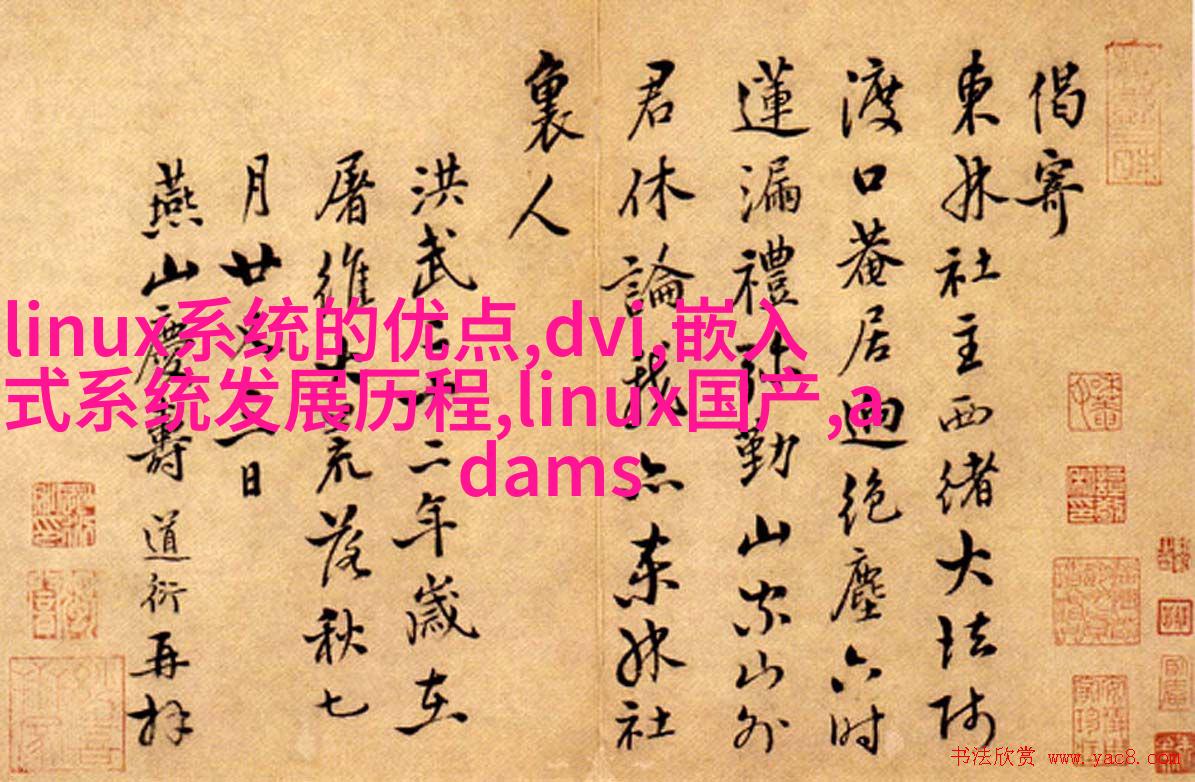 偈寄
東林社主西緒大法師
渡口菴居迥絕塵六时
蓮漏禮弥勤山家山外
君休論我亦東林社
裏人
洪武二十二年歲在
屠維大荒落秋七
月廿二日
燕山慶壽道衍再拜
linux系统的优点,dvi,嵌入
式系统发展历程,linux国产,a
dams
书法欣赏 www.yac8.com